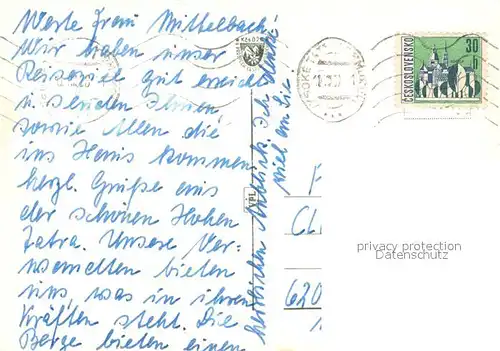 Werte Frau Mittelbach!
Wir haben unser
Reiseziel gut erreicht
u. senden Ihnen
sowie Allen die
ins Haus kommen
herzl. Grüße aus
der schönen Hohen
Tatra. Unsere Ver-
wandten bieten
uns, was in ihren
Kräften steht. Die
Berge bieten einen
herrlichen Anblick. Ich denke
viel an Sie
ČESKOSLOVENSKO
30
h
F
CL
620
privacy protection
Datenschutz